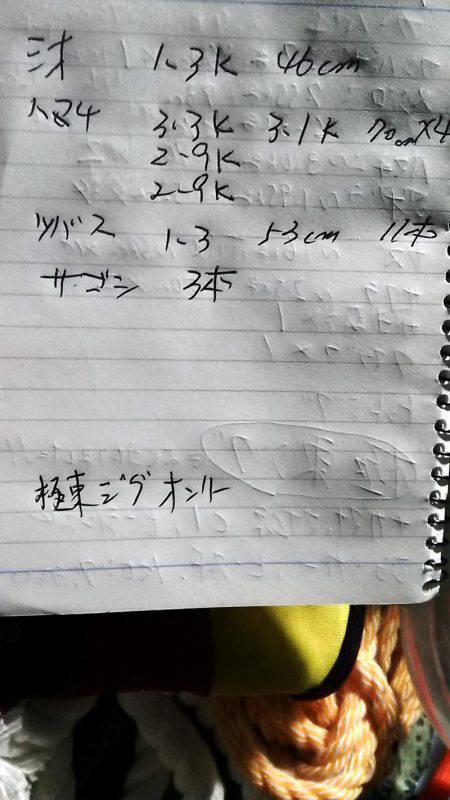 三才 1.3K 46cm
ハマチ 3.3K 3.1K 70cm×4
2.9K
2.9K
ツバス 1.3 53cm 11本
サゴシ 3本
極東ジグオンリー